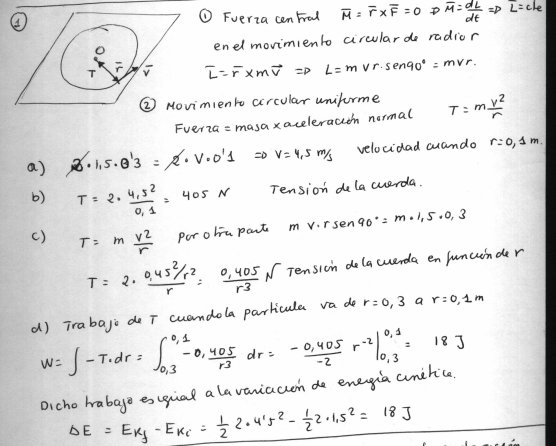 ① Fuerza central M̄ = r̄ x F̄ = 0 ⇒ M̄ = dL̄/dt ⇒ L̄ = cte
en el movimiento circular de radio r
L̄ = r̄ x m v⃗ ⇒ L = m v r · sen 90° = m v r.
② Movimiento circular uniforme
Fuerza = masa x aceleración normal T = m v²/r
O
T r̄ v̄
a) 2 · 1,5 · 0'3 = 2 · V · 0'1 ⇒ V = 4,5 m/s velocidad cuando r = 0,1 m.
b) T = 2 · 4,5²/0,1 = 405 N Tensión de la cuerda.
c) T = m v²/r por otra parte m v · r sen 90° = m · 1,5 · 0,3
T = 2 · 0,45²/r²/r = 0,405/r3 N Tensión de la cuerda en función de r
d) Trabajo de T cuando la partícula va de r = 0,3 a r = 0,1 m
W = ∫ -T · dr = ∫0,3 0,1 -0,405/r3 dr = -0,405/-2 r-2 |0,3 0,1 = 18 J
Dicho trabajo es igual a la variación de energía cinética.
ΔE = EKf - EKi = 1/2 2 · 4'5² - 1/2 2 · 1,5² = 18 J